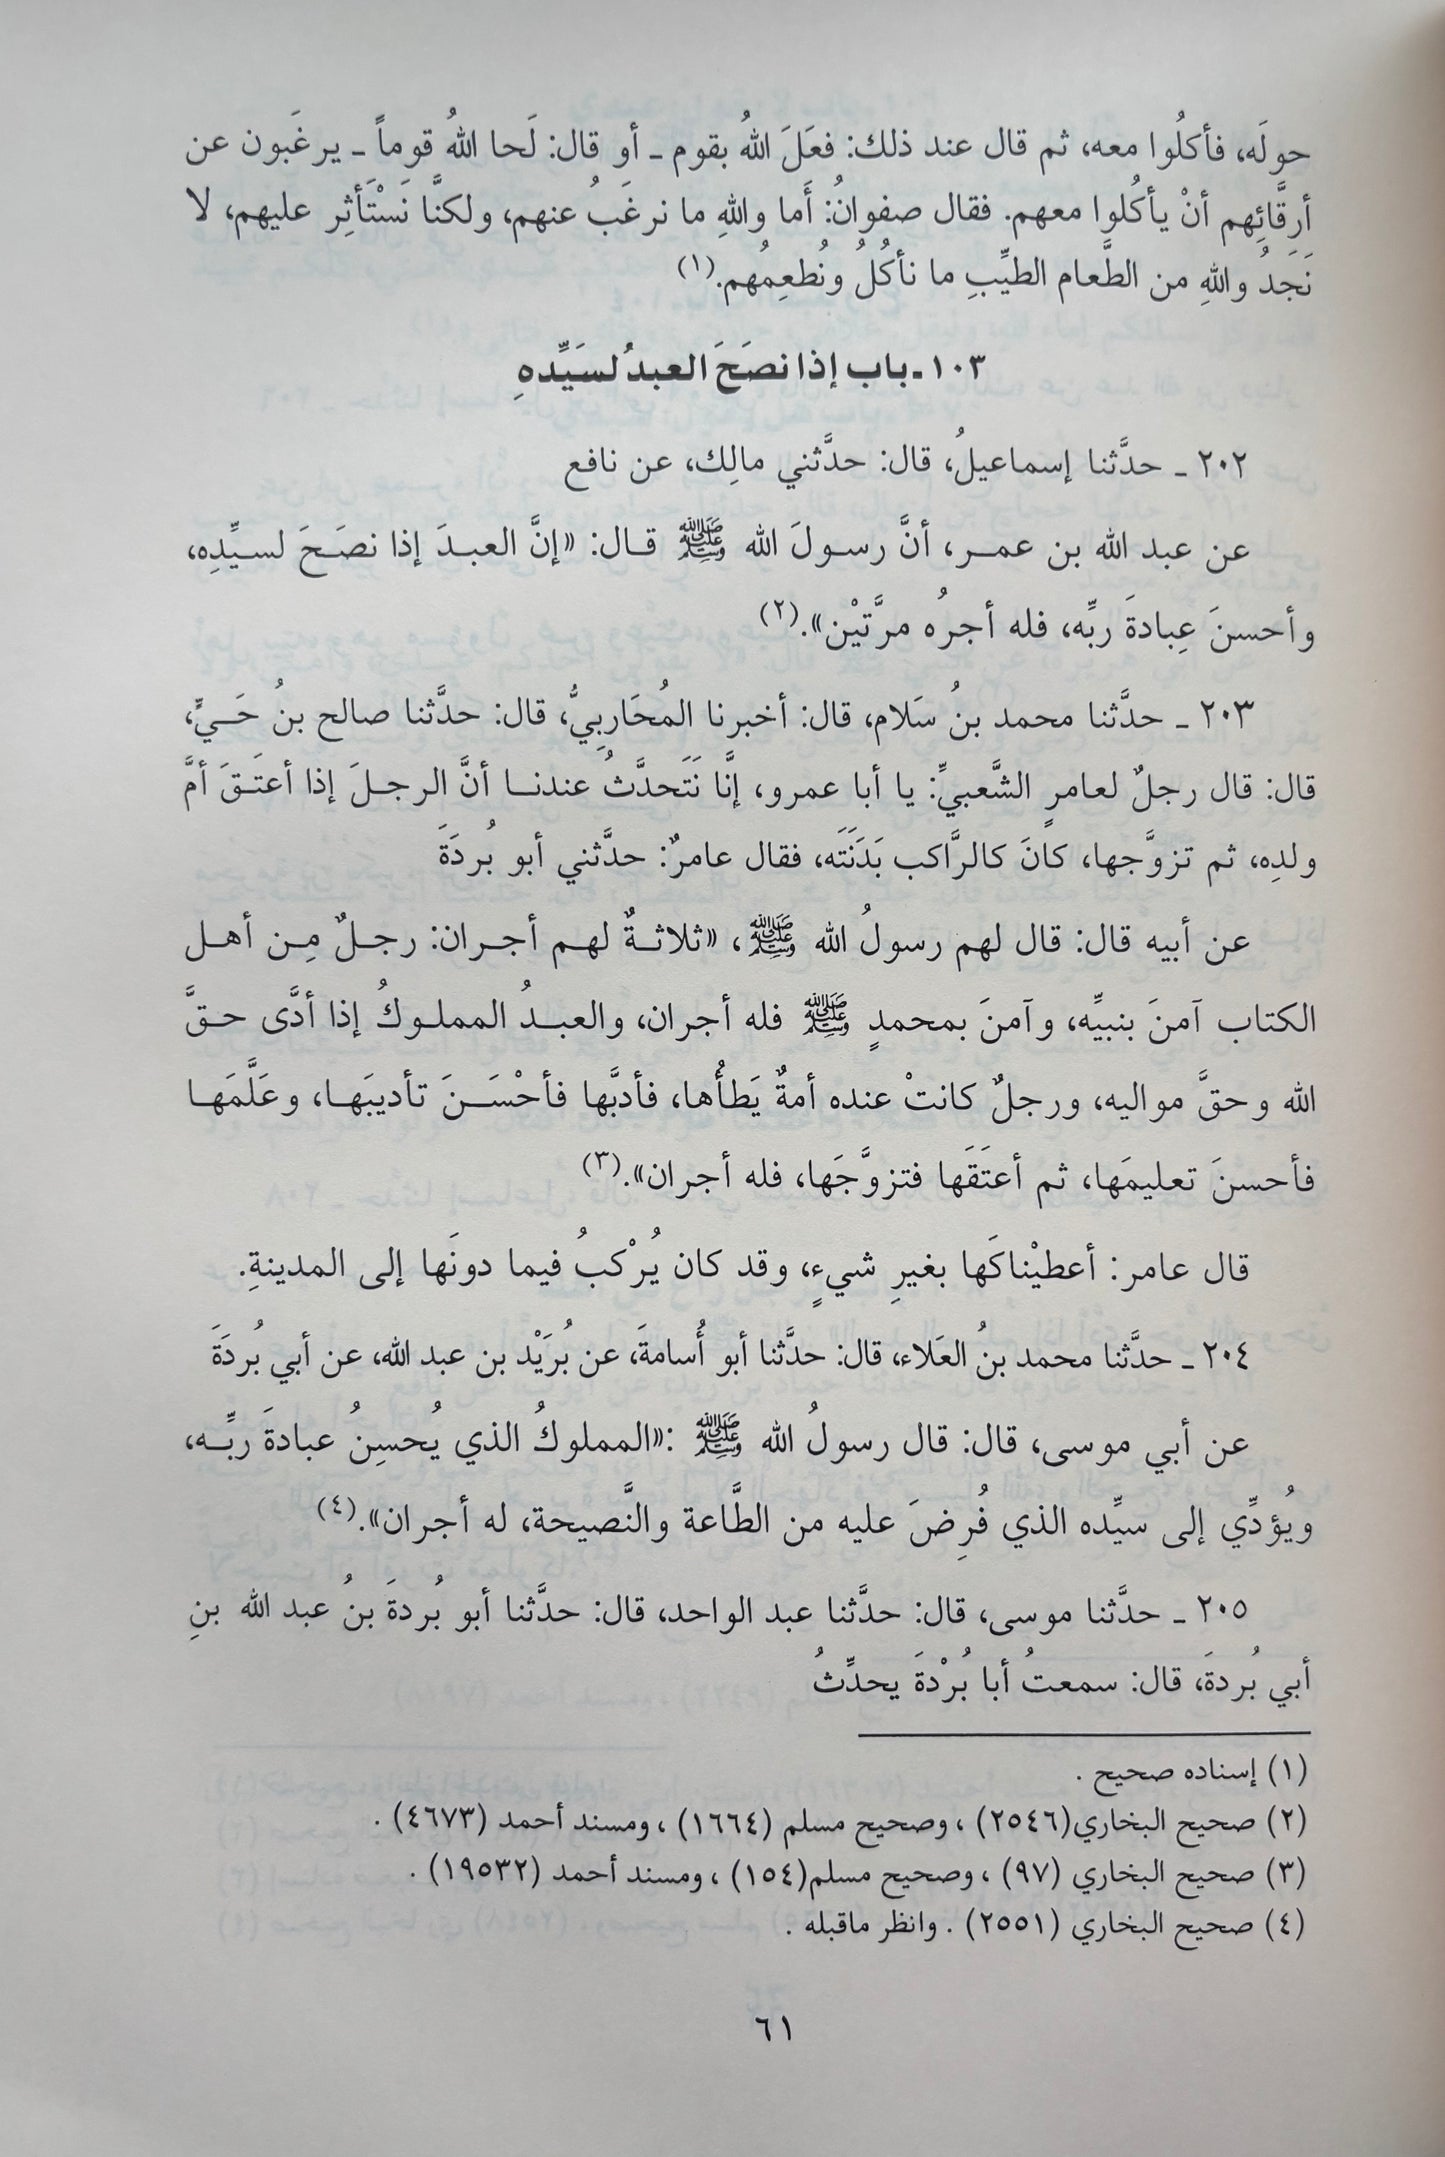 حولَه، فأكلُوا معه، ثم قال عند ذلك: فعَلَ اللهُ بقوم ـ أو قال: لَحا اللهُ قوماً ـ يرغَبون عن
أرقَّائِهم أنْ يأكُلوا معهم. فقال صفوانُ: أَما واللهِ ما نرغَبُ عنهم، ولكنَّا نَسْتَأثِر عليهم، لا
نَجَدُ واللهِ من الطَّعام الطيِّبِ ما نأكُلُ ونُطعِمُهم.(١)
١٠٣ ـ باب إذا نصَحَ العبدُ لسَيِّدهِ
٢٠٢ ـ حدَّثنا إسماعيلُ، قال: حدَّثني مالِك، عن نافع
عن عبد الله بن عمر، أنَّ رسولَ الله ﷺ قال: «إنَّ العبدَ إذا نصَحَ لسيِّدِه،
وأحسنَ عِبادةَ ربِّه، فله أجرُه مرَّتيْن».(٢)
٢٠٣ ـ حدَّثنا محمد بنُ سَلام، قال: أخبرنا المُحَاربِيُّ، قال: حدَّثنا صالح بنُ حَيٍّ،
قال: قال رجلٌ لعامرٍ الشَّعبيِّ: يا أبا عمرو، إنَّا نَتَحدَّثُ عندنا أنَّ الرجلَ إذا أعتَقَ أمَّ
ولدِه، ثم تزوَّجها، كانَ كالرَّاكب بَدَنَتَه، فقال عامرٌ: حدَّثني أبو بُردَةَ
عن أبيه قال: قال لهم رسولُ الله ﷺ، «ثلاثةٌ لهم أجران: رجلٌ مِن أهل
الكتاب آمنَ بنبيِّه، وآمنَ بمحمدٍ ﷺ فله أجران، والعبدُ المملوكُ إذا أدَّى حقَّ
الله وحقَّ مواليه، ورجلٌ كانتْ عنده أمةٌ يَطأُها، فأدبَّها فأحْسَنَ تأديبَها، وعَلَّمَها
فأحسنَ تعليمَها، ثم أعتَقَها فتزوَّجَها، فله أجران».(٣)
قال عامر: أعطيْناكَها بغيرِ شيءٍ، وقد كان يُرْكبُ فيما دونَها إلى المدينةِ.
٢٠٤ ـ حدَّثنا محمد بنُ العَلاء، قال: حدَّثنا أبو أُسامةَ، عن بُرَيْد بن عبد الله، عن أبي بُردَةَ
عن أبي موسى، قال: قال رسولُ الله ﷺ :«المملوكُ الذي يُحسِنُ عبادةَ ربِّه،
ويُؤدِّي إلى سيِّده الذي فُرِضَ عليه من الطَّاعة والنَّصيحة، له أجران».(٤)
٢٠٥ ـ حدَّثنا موسى، قال: حدَّثنا عبد الواحد، قال: حدَّثنا أبو بُردةَ بنُ عبد الله بنِ
أبي بُردةَ، قال: سمعتُ أبا بُرْدةَ يحدِّثُ
(١) إسناده صحيح .
(٢) صحيح البخاري(٢٥٤٦) ، وصحيح مسلم (١٦٦٤) ، ومسند أحمد (٤٦٧٣) .
(٣) صحيح البخاري (٩٧) ، وصحيح مسلم(١٥٤) ، ومسند أحمد (١٩٥٣٢) .
(٤) صحيح البخاري (٢٥٥١) . وانظر ماقبله .
٦١